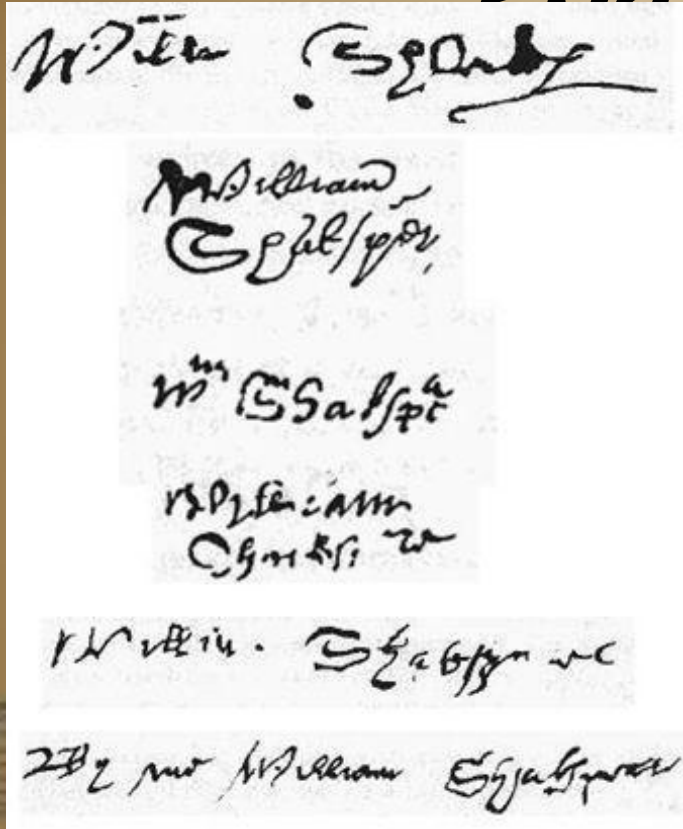 Willm Shakp
William
Shakspēr
Wm Shakspē
William
Willm Shakspere
By me William Shakspeare